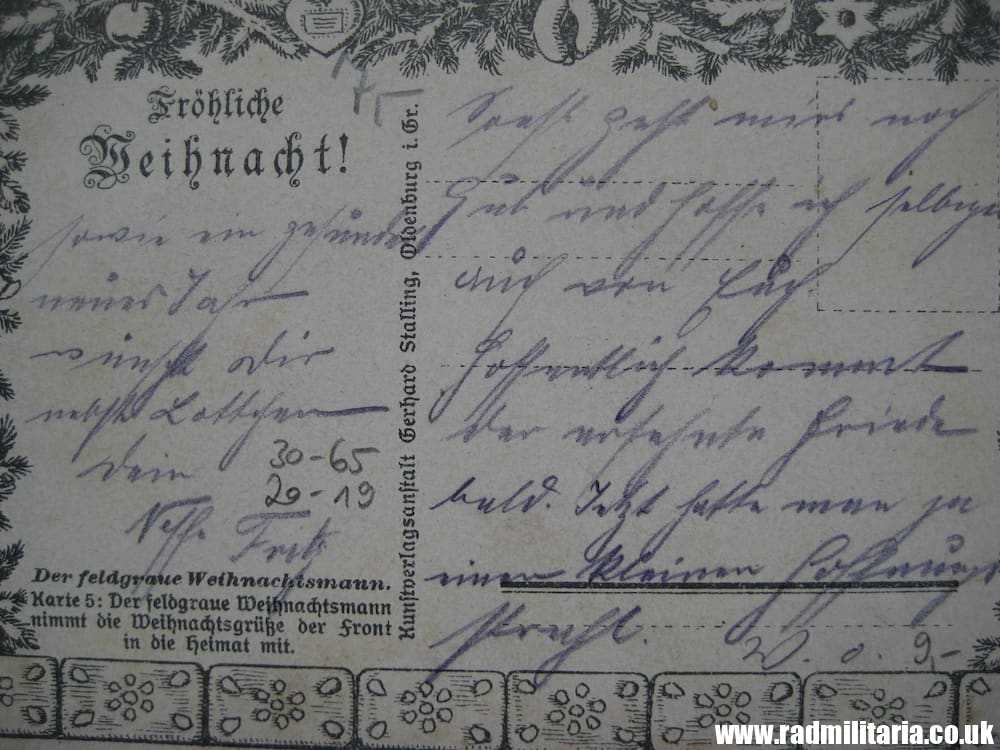 Fröhliche
Weihnacht!
sowie ein gesundes
neues Jahr
wünscht Dir
nebst Lottchen
Dein
Neffe Fritz
30-65
20-19
Der feldgraue Weihnachtsmann.
Karte 5: Der feldgraue Weihnachtsmann
nimmt die Weihnachtsgrüße der Front
in die Heimat mit.
Kunstverlagsanstalt Gerhard Stalling, Oldenburg i. Gr.
Sonst geht mirs noch
gut und hoffe ich selbiges
auch von Euch
Hoffentlich kommt
der ersehnte Friede
bald. Jetzt hatte man ja
einen kleinen Hoffnungs
strahl.
W. o. 9,-
www.radmilitaria.co.uk